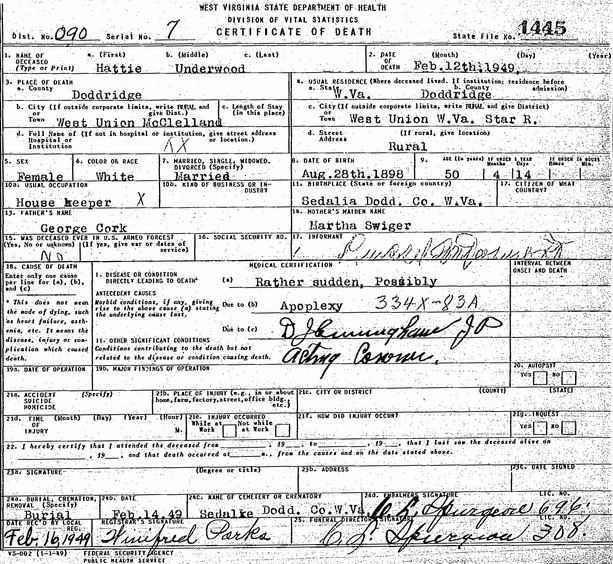 WEST VIRGINIA STATE DEPARTMENT OF HEALTH
DIVISION OF VITAL STATISTICS
CERTIFICATE OF DEATH
Dist. No. 090 Serial No. 7 State File No. 1445
1. NAME OF DECEASED (Type or Print) a. (First) b. (Middle) c. (Last)
Hattie Underwood
2. DATE OF DEATH (Month) (Day) (Year)
Feb.12th,1949,
3. PLACE OF DEATH
a. County
Doddridge
4. USUAL RESIDENCE (Where deceased lived. If institution: residence before
a. State b. County
W.Va. Doddridge
b. City (If outside corporate limits, write RURAL and give Dist.) or Town
West Union McClelland
c. Length of Stay (in this place)
c. City (If outside corporate limits, write RURAL and give District) or Town
West Union W.Va. Star R.
d. Full Name of (If not in hospital or institution, give street address or location) Hospital or Institution
d. Street Address (If rural, give location)
Rural
5. SEX
Female
6. COLOR OR RACE
White
7. MARRIED, SINGLE, WIDOWED, DIVORCED (Specify)
Married
8. DATE OF BIRTH
Aug.28th.1898
9. AGE (In years) IF UNDER 1 YEAR IF UNDER 24 HRS.
50 4 14
10a. USUAL OCCUPATION
House keeper X
10b. KIND OF BUSINESS OR INDUSTRY
11. BIRTHPLACE (State or foreign country)
Sedalia Dodd. Co. W.Va.
12. CITIZEN OF WHAT COUNTRY?
13. FATHER'S NAME
George Cork
14. MOTHER'S MAIDEN NAME
Martha Swiger
15. WAS DECEASED EVER IN U.S. ARMED FORCES?
(Yes, No or unknown) (If yes, give war or dates of service)
No
16. SOCIAL SECURITY NO.
17. INFORMANT
18. CAUSE OF DEATH
Enter only one cause per line for (a), (b), and (c)
* This does not mean the mode of dying, such as heart failure, asthenia, etc. It means the disease, injury or complication which caused death.
MEDICAL CERTIFICATION
INTERVAL BETWEEN ONSET AND DEATH
I. DISEASE OR CONDITION DIRECTLY LEADING TO DEATH* (a) Rather sudden, Possibly
ANTECEDENT CAUSES
Morbid conditions, if any, giving rise to the above cause (a) stating the underlying cause last.
Due to (b) Apoplexy 334X-83A
Due to (c) D J Cunningham J P
II. OTHER SIGNIFICANT CONDITIONS
Conditions contributing to the death but not related to the disease or condition causing death.
Acting Coroner.
19a. DATE OF OPERATION
19b. MAJOR FINDINGS OF OPERATION
20. AUTOPSY?
YES NO
21a. ACCIDENT SUICIDE HOMICIDE (Specify)
21b. PLACE OF INJURY (e.g., in or about home, farm, factory, street, office bldg., etc.)
21c. CITY OR DISTRICT (COUNTY) (STATE)
21d. TIME OF INJURY (Month) (Day) (Year) (Hour) M.
21e. INJURY OCCURRED
While at Work Not while at Work
21f. HOW DID INJURY OCCUR?
21g. INQUEST
YES NO
22. I hereby certify that I attended the deceased from , 19 , to , 19 , that I last saw the deceased alive on
, 19 , and that death occurred at m., from the causes and on the date stated above.
23a. SIGNATURE (Degree or title)
23b. ADDRESS
23c. DATE SIGNED
24a. BURIAL, CREMATION, REMOVAL (Specify)
Burial
24b. DATE
Feb.14.49
24c. NAME OF CEMETERY OR CREMATORY
Sedalke Dodd. Co.W.Va.
24d. EMBALMERS SIGNATURE LIC. NO.
C. L. Spurgeon 696.
DATE REC'D BY LOCAL REG.
Feb. 16, 1949
REGISTRAR'S SIGNATURE
Winifred Parks
25. FUNERAL DIRECTOR'S SIGNATURE LIC. NO.
C. L. Spurgeon 308.
VS-002 (1-1-49) FEDERAL SECURITY AGENCY
PUBLIC HEALTH SERVICE